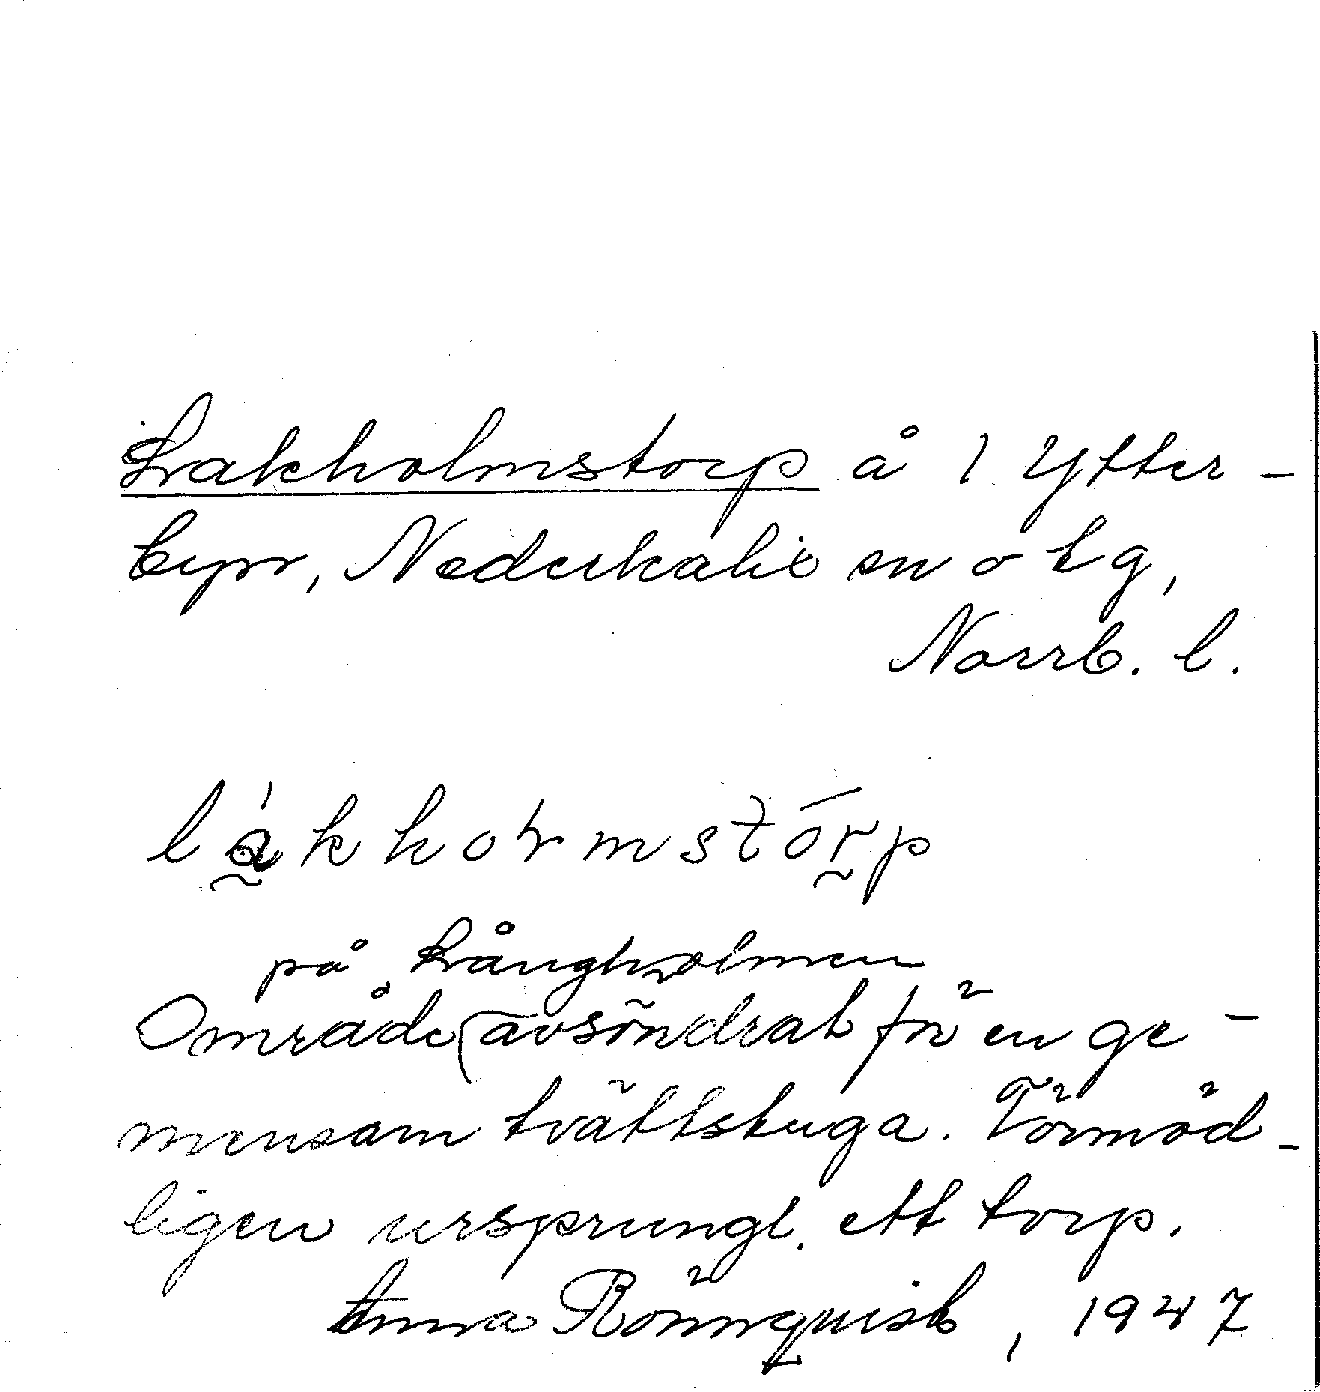 Lakholmstorp å 1 Ytter-
byn, Nederkalix sn o tg,
Norrb. l.
làkholmstórp
på Långholmen
Område (avsöndrat för en ge-
mensam tvättstuga. Förmod-
ligen ursprungl. ett torp.
Anna Rönnquist, 1947